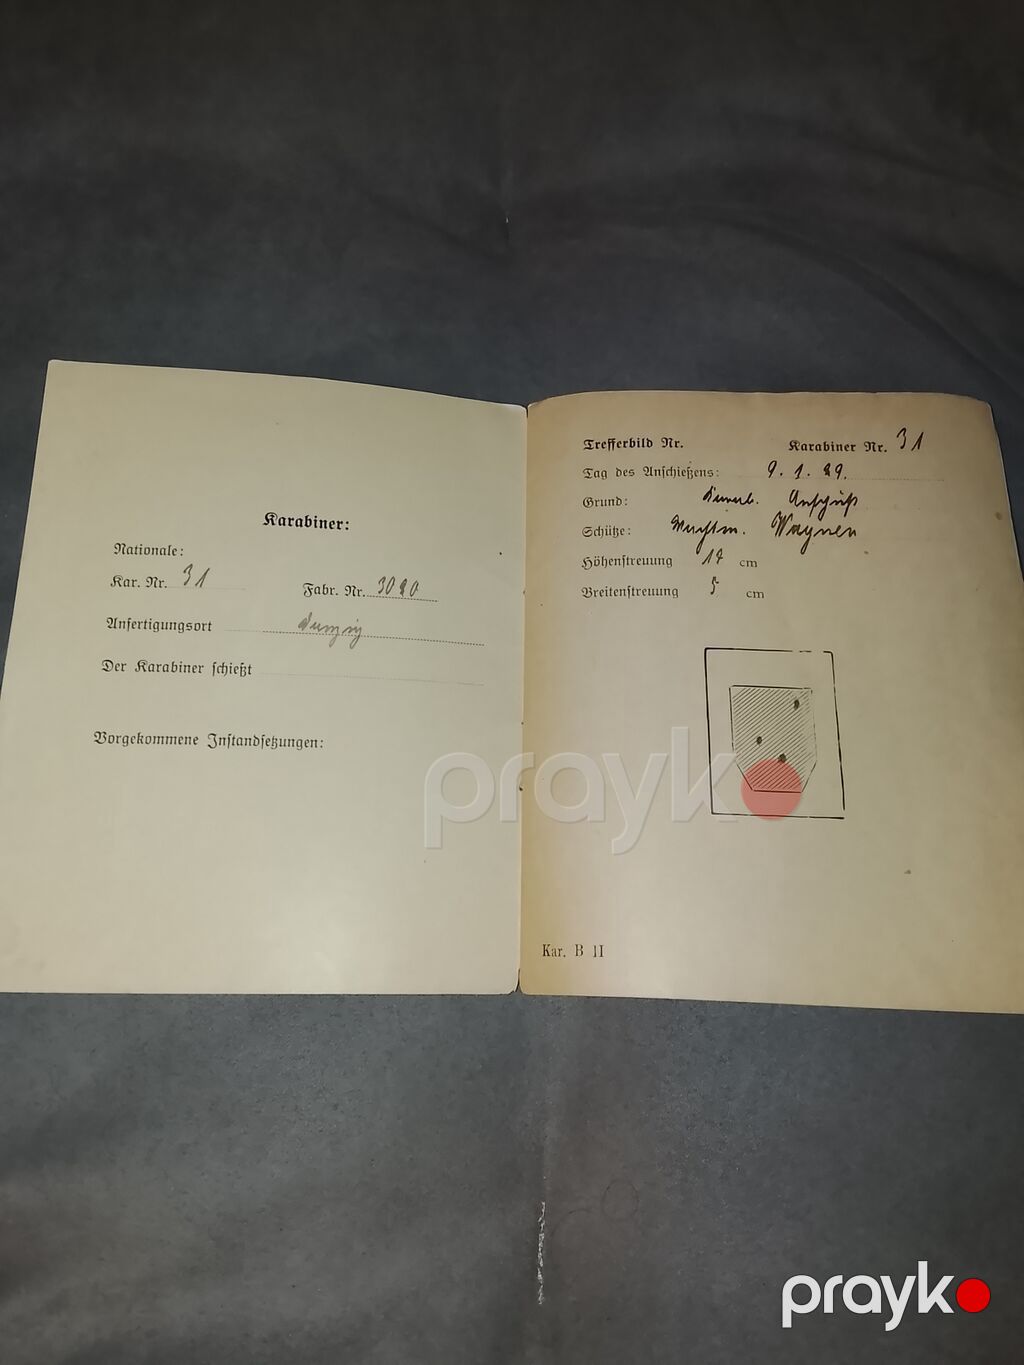 Karabiner:
Nationale:
Kar. Nr. 31 Fabr. Nr. 3020
Anfertigungsort Danzig
Der Karabiner schießt
Vorgekommene Instandsetzungen:
Trefferbild Nr. Karabiner Nr. 31
Tag des Anschießens: 9. 1. 29.
Grund: Anschuß
Schütze: Wachtm. Wagner
Höhenstreuung cm
Breitenstreuung 5 cm
Kar. B II
prayk
prayk